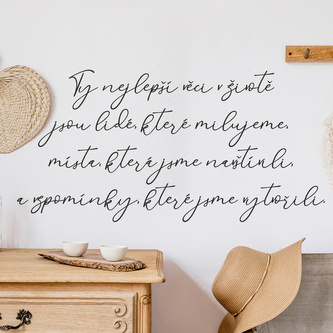 Ty nejlepší věci v životě
jsou lidé, které milujeme,
místa, které jsme navštívili,
a vzpomínky, které jsme vytvořili.